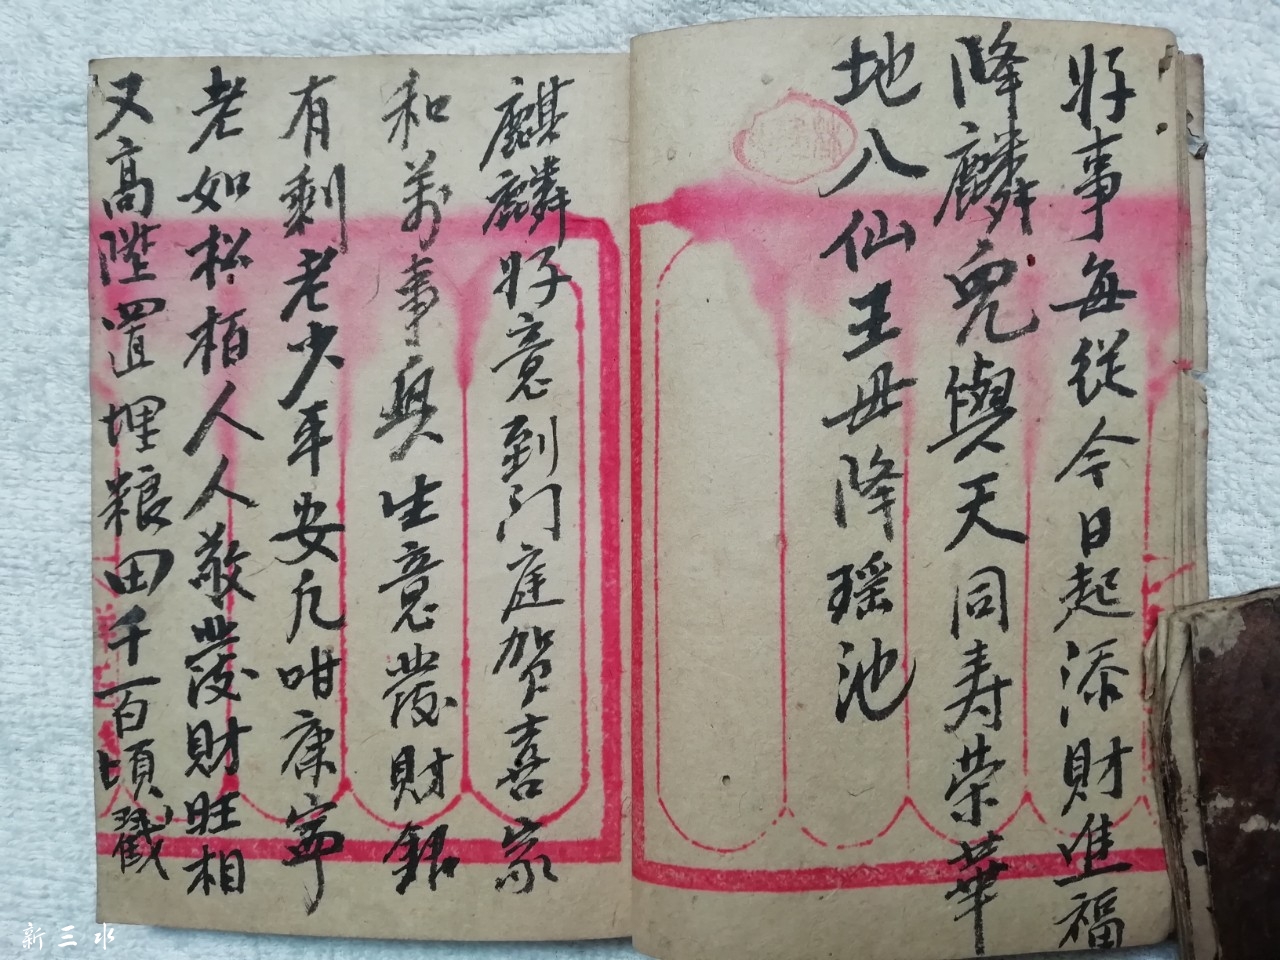 好事每从今日起添财进福
降麟儿與天同寿荣華
地八仙王母降瑶池
麒麟好意到门庭贺喜家
和万事興生意發财銀
有剩老少年安凡咁康寧
老如松栢人人敬發财旺相
又高陞置埋粮田千百顷
新三水